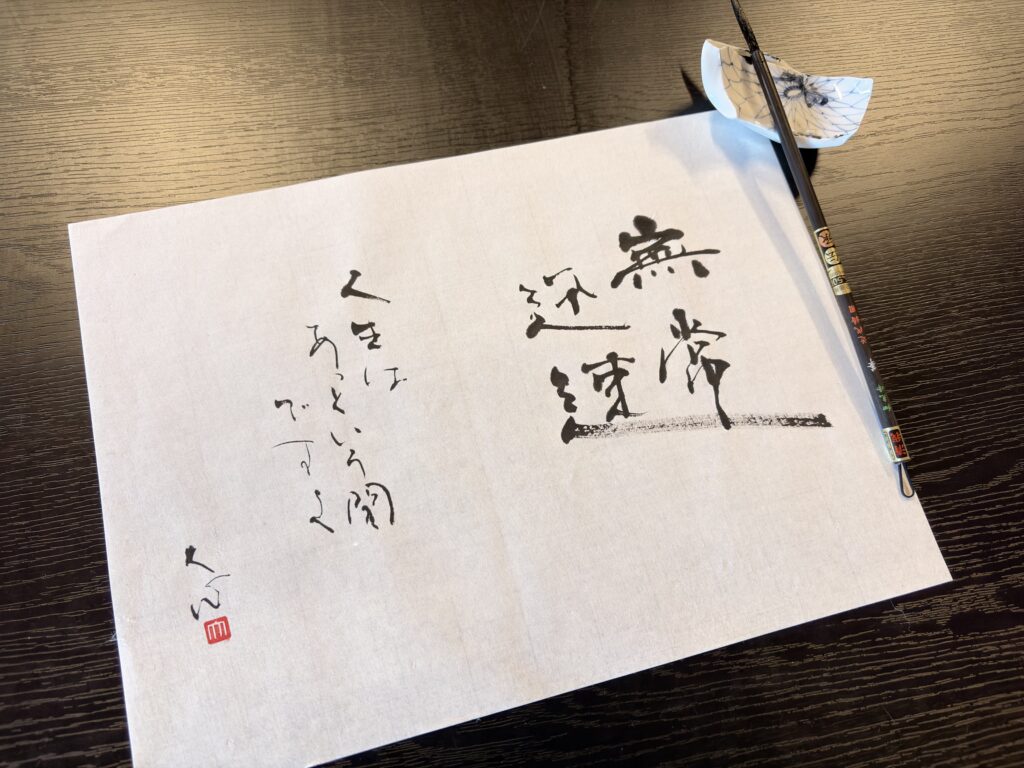 無常
迅速
人生は
あっという間
ですよ